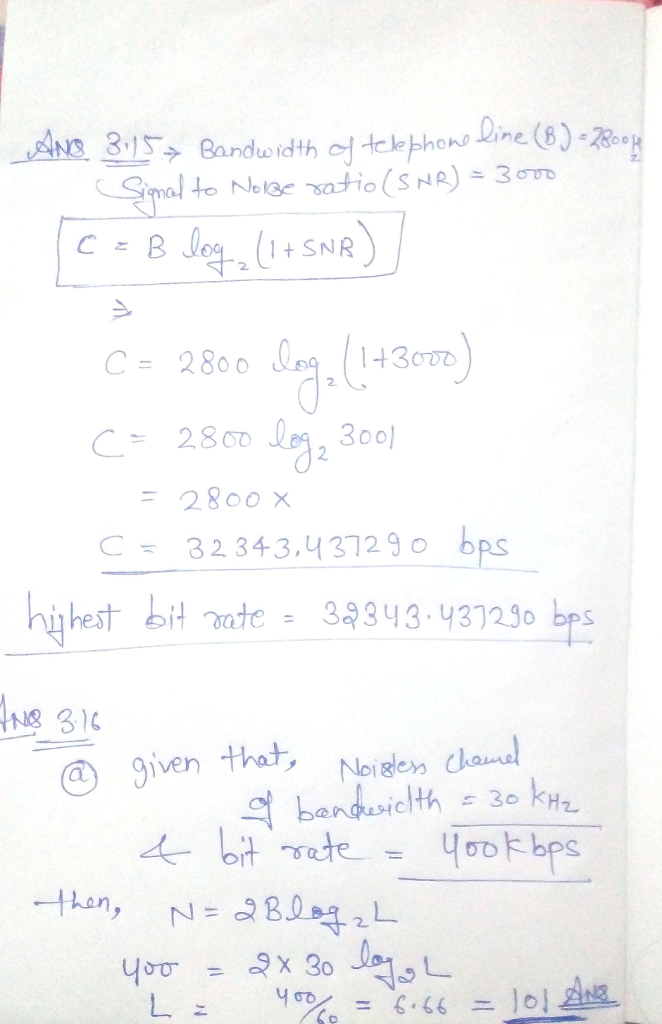 Ans 3.15 → Bandwidth of telephone line (B) = 2800 Hz
Signal to Noise ratio (SNR) = 3000
C = B log₂ (1+SNR)
⇒
C = 2800 log₂ (1+3000)
C = 2800 log₂ 3001
= 2800 ×
C = 32343.437290 bps
highest bit rate = 32343.437290 bps
Ans 3.16
(a) given that, Noisless channel
of bandwidth = 30 KHz
& bit rate = 400 kbps
then, N = 2B log₂ L
400 = 2 × 30 log₂ L
L = 400/60 = 6.66 = 101 Ans